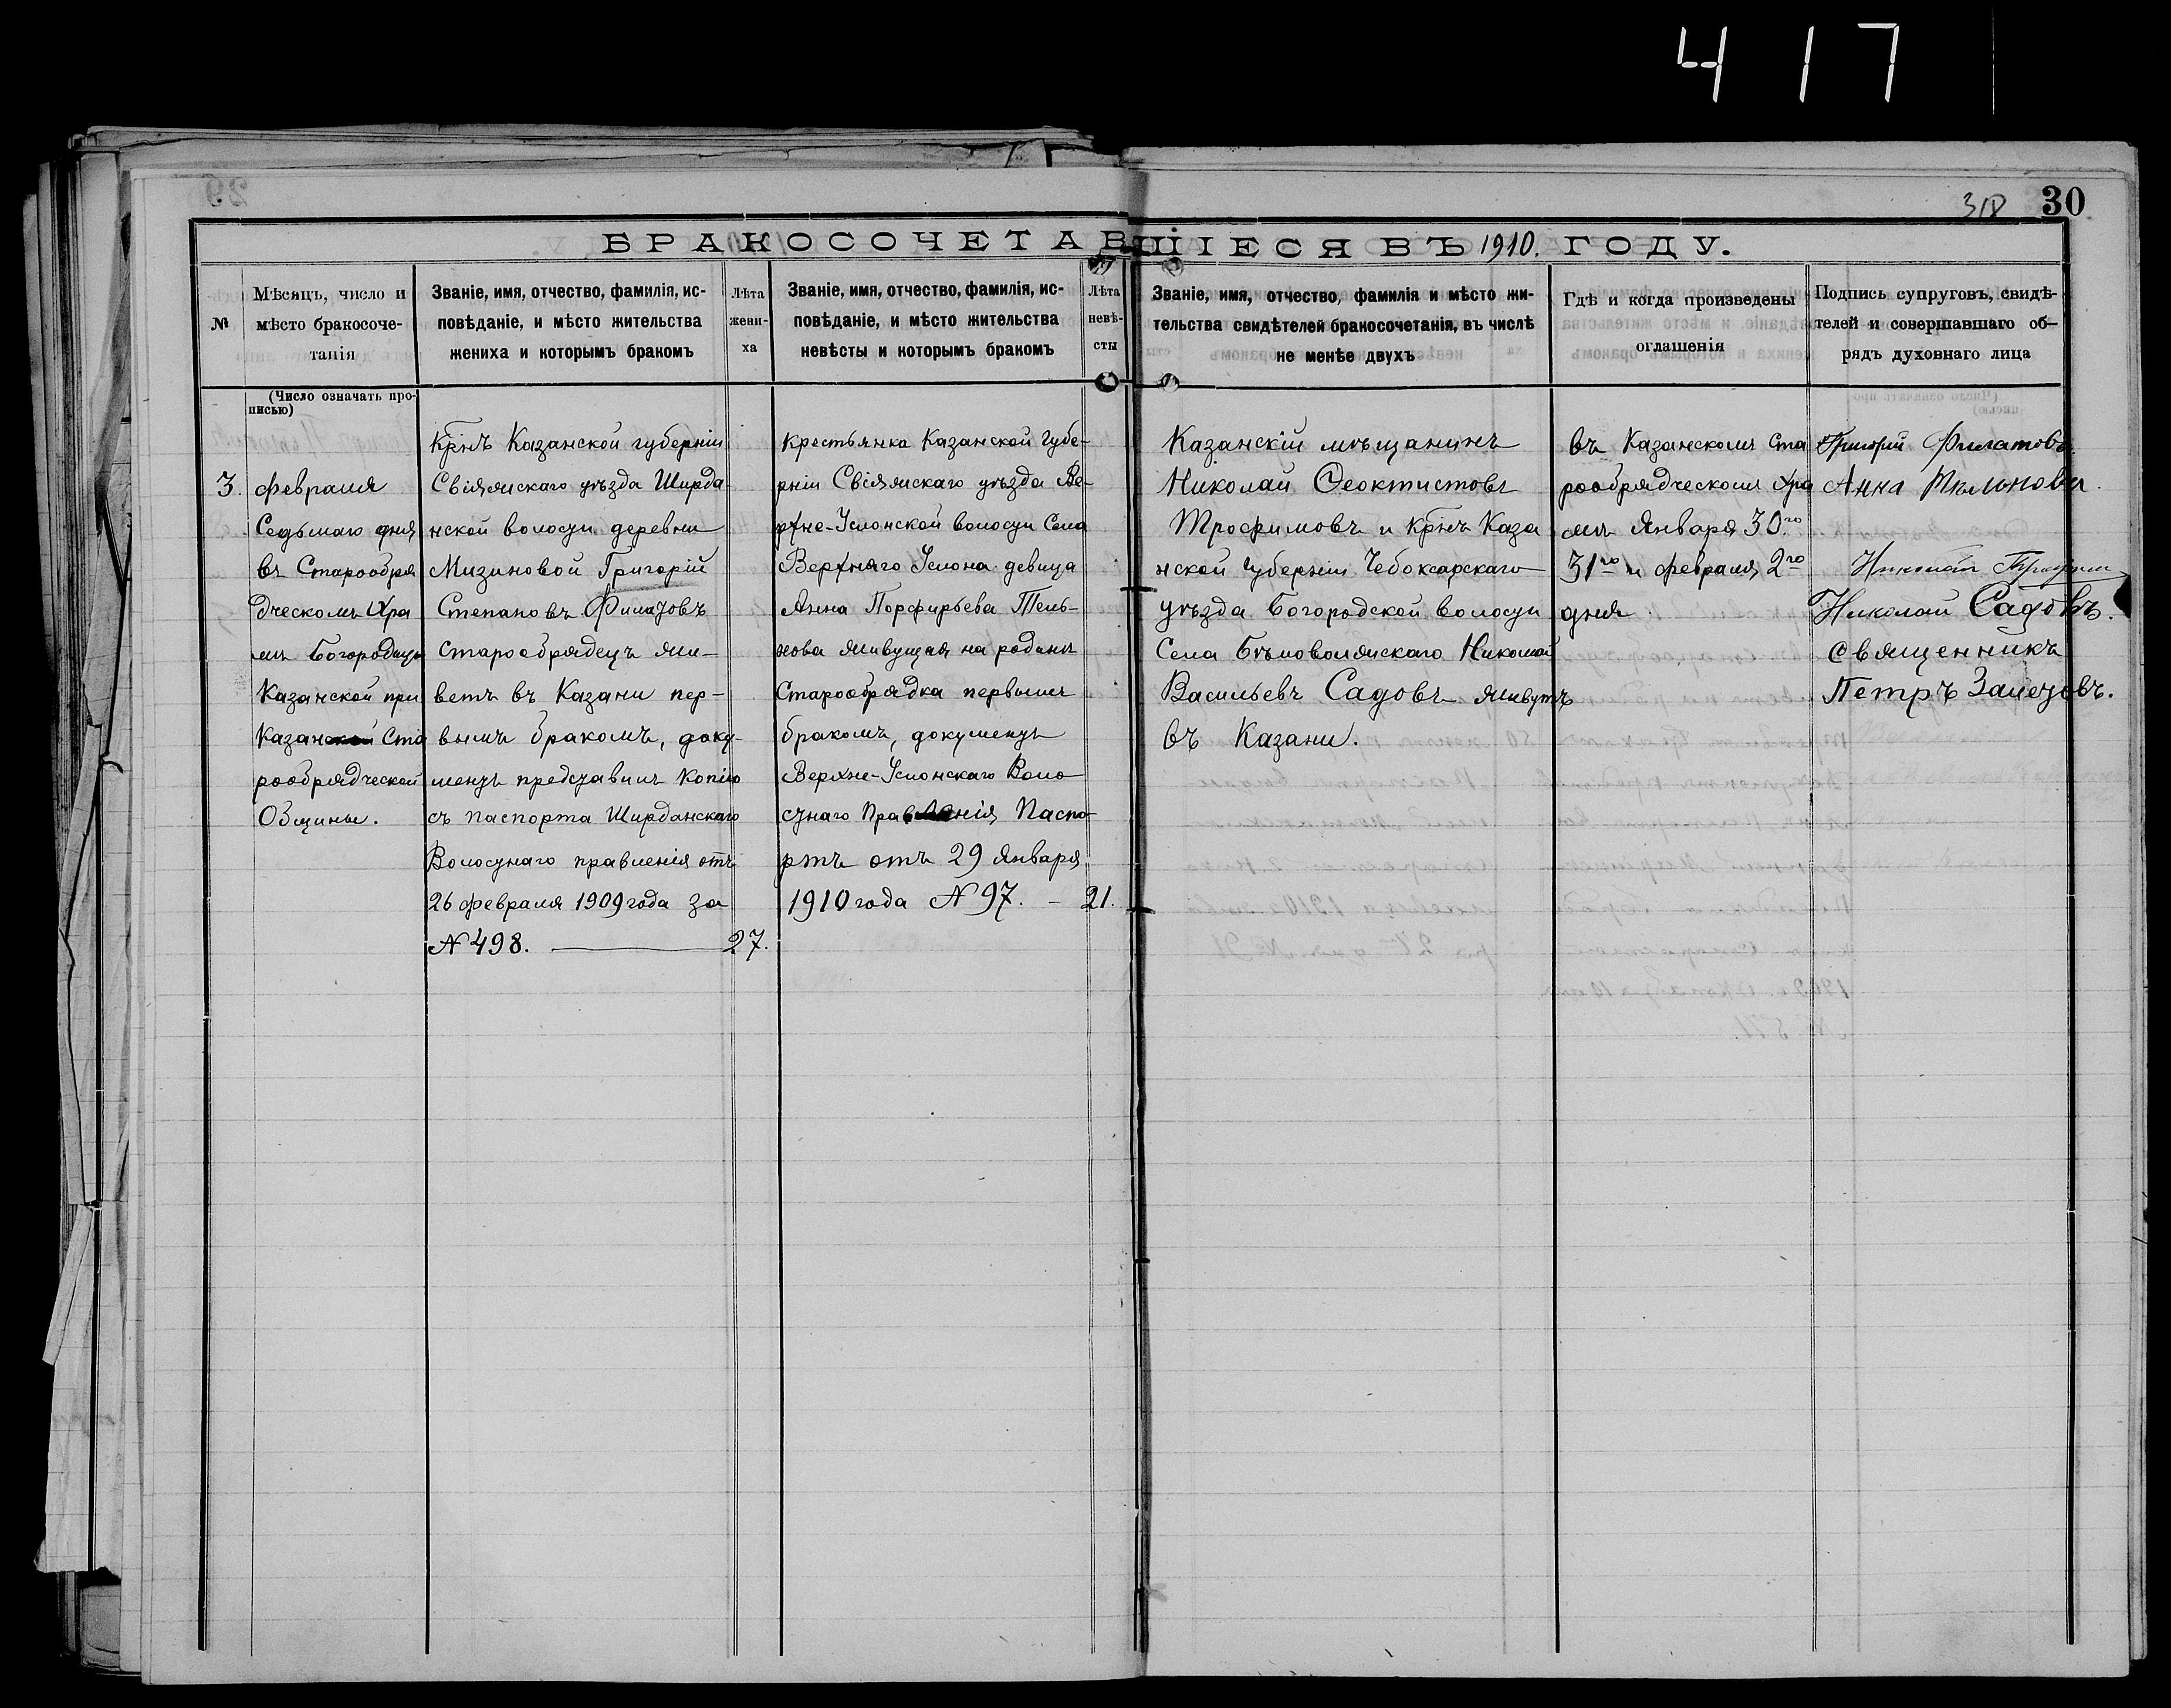 417
29
318 30
БРАКОСОЧЕТАВШІЕСЯ ВЪ 1910. ГОДУ.
№
Мѣсяцъ, число и
мѣсто бракосоче-
танія
Званіе, имя, отчество, фамилія, ис-
повѣданіе, и мѣсто жительства
жениха и которымъ бракомъ
Лѣта
жени-
ха
Званіе, имя, отчество, фамилія, ис-
повѣданіе, и мѣсто жительства
невѣсты и которымъ бракомъ
Лѣта
невѣ-
сты
Званіе, имя, отчество, фамилія и мѣсто жи-
тельства свидѣтелей бракосочетанія, въ числѣ
не менѣе двухъ
Гдѣ и когда произведены
оглашенія
Подпись супруговъ, свидѣ-
телей и совершавшаго об-
рядъ духовнаго лица
(Число означать про-
писью)
3.
февраля
Седьмаго дня
въ Старообря
дческомъ Хра
мѣ Богородицы
Казанской при
Казанской Ста
рообрядческой
Общины.
Крнъ Казанской губерніи
Свіяжскаго уѣзда Ширда
нской волости деревни
Мизиновой Григорій
Степановъ Филатовъ
старообрядецъ жи-
ветъ въ Казани пер-
вымъ бракомъ, доку-
ментъ представилъ копію
съ паспорта Ширданскаго
Волостнаго правленія отъ
26 февраля 1909 года за
№ 498. 27.
крестьянка Казанской губе-
рніи Свіяжскаго уѣзда Ве-
рхне-Услонской волости Села
Верхняго Услона девица
Анна Порфирьева Тель-
нова живущая на родинѣ
Старообрядка первымъ
бракомъ, документъ
Верхне-Услонскаго Воло
стнаго Правленія Паспо-
ртъ отъ 29 Января
1910 года № 97. - 21.
Казанскій мѣщанинъ
Николай Феоктистовъ
Трофимовъ и Крнъ Каза
нской губерніи Чебоксарскаго
уѣзда Богородской волости
Села Бѣловолжскаго Николай
Васильевъ Садовъ живутъ
въ Казани.
въ Казанскомъ Ста
рообрядческомъ Хра
мѣ Января 30.го
31го и февраля 2го
дня
Григорій Филатовъ.
Анна Тельнова.
Николай
Николай Садовъ.
священникъ
Петръ Залетовъ.